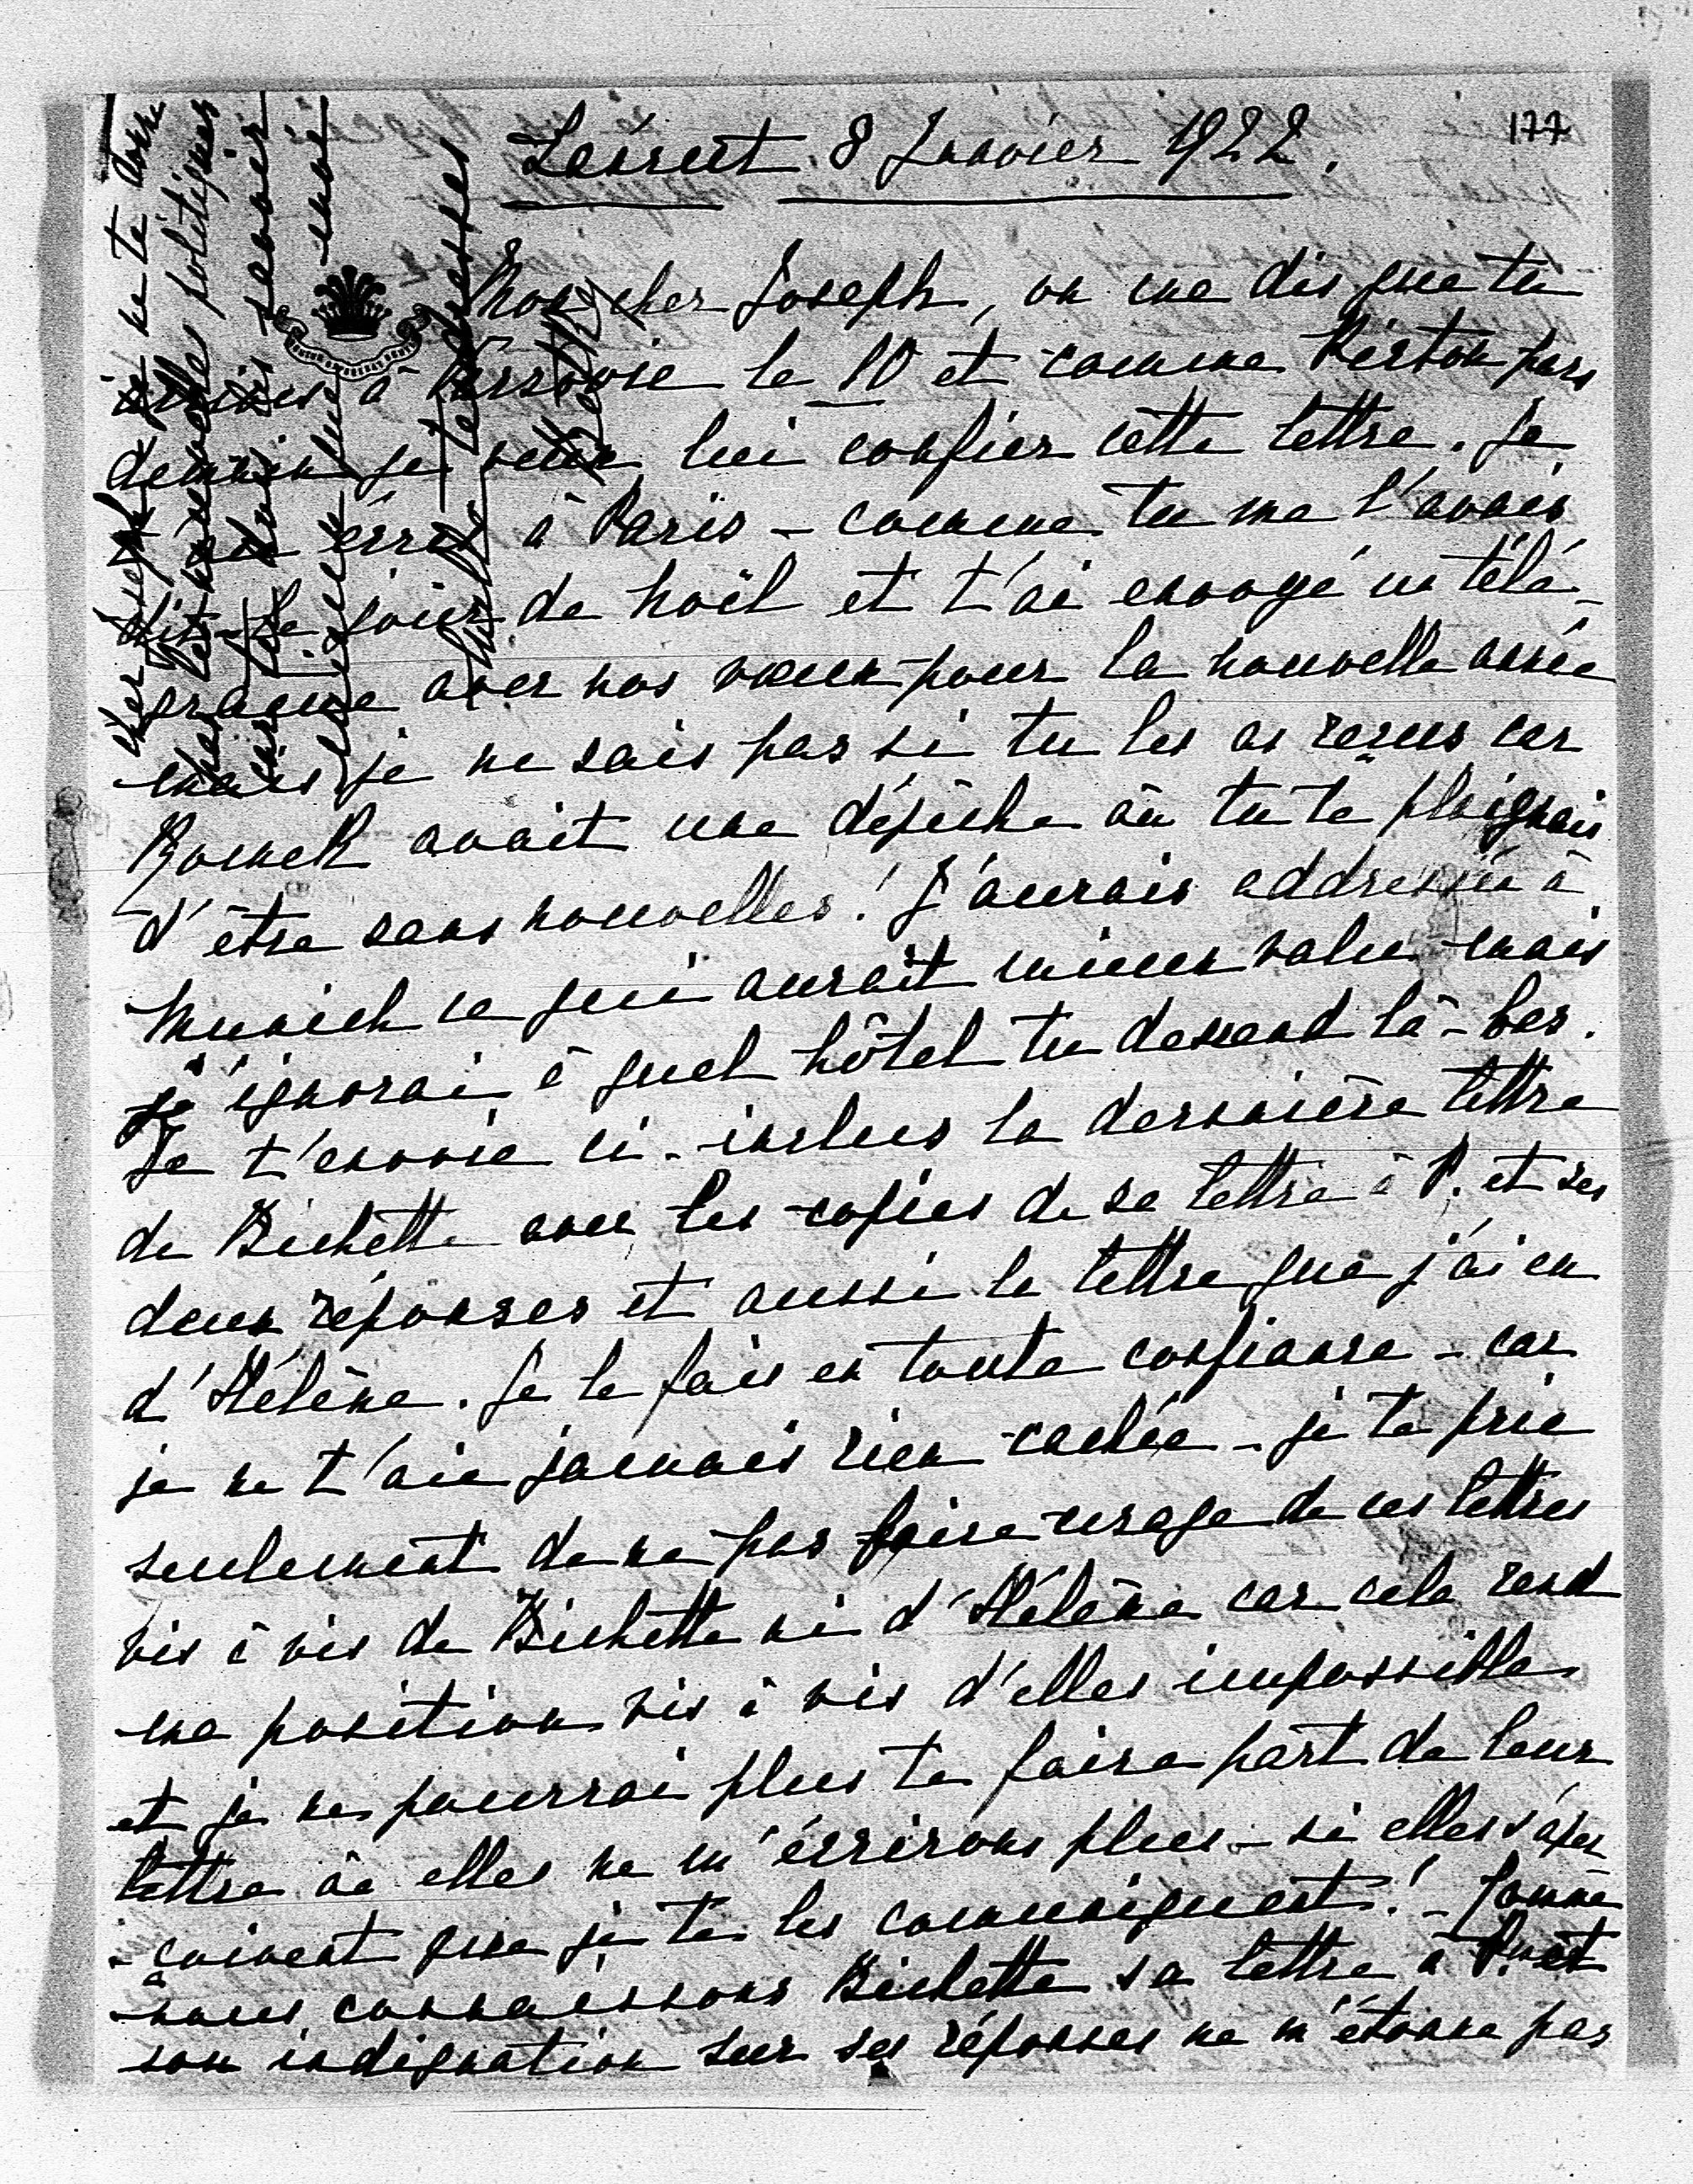 177
Łańcut 8 Janvier 1922.
Mon cher Joseph, on me dis que tu
arrives à Varsovie le 10 et comme Kiston pars
demain je veux lui confier cette lettre. Je
t'ai écris à Paris - comme tu me l'avais
dit - le jour de Noël et t'ai envoyé un télé-
gramme avec nos vœux pour la nouvelle année
mais je ne sais pas si tu les as reçus car
Romek avait une dépêche où tu te plaignais
d'être sans nouvelles! J'aurais addressée à
Munich ce qui aurait mieux valu mais
j'ignorai à quel hôtel tu descend là-bas.
Je t'envoie ci-inclus la dernière lettre
de Bichette avec les copies de sa lettre à P. et ses
deux réponses et aussi la lettre que j'ai eu
d'Hélène. Je le fais en toute confiance - car
je ne t'aie jamais rien cachée - je te prie
seulement de ne pas faire usage de ces lettres
vis à vis de Bichette ni d'Hélène car cela rend
ma position vis à vis d'elles impossible
et je ne pourrai plus te faire part de leur
lettre où elles ne m'écrirons plus - si elles s'aper
-çoivent que je te les communiquent! - Comme
nous connaissons Bichette sa lettre à P. et
son indignation sur ses réponses ne m'étonne pas
cher Joseph je ne te donne
pas les nouvelles politiques
tu dois savoir
mieux que moi
tendresses